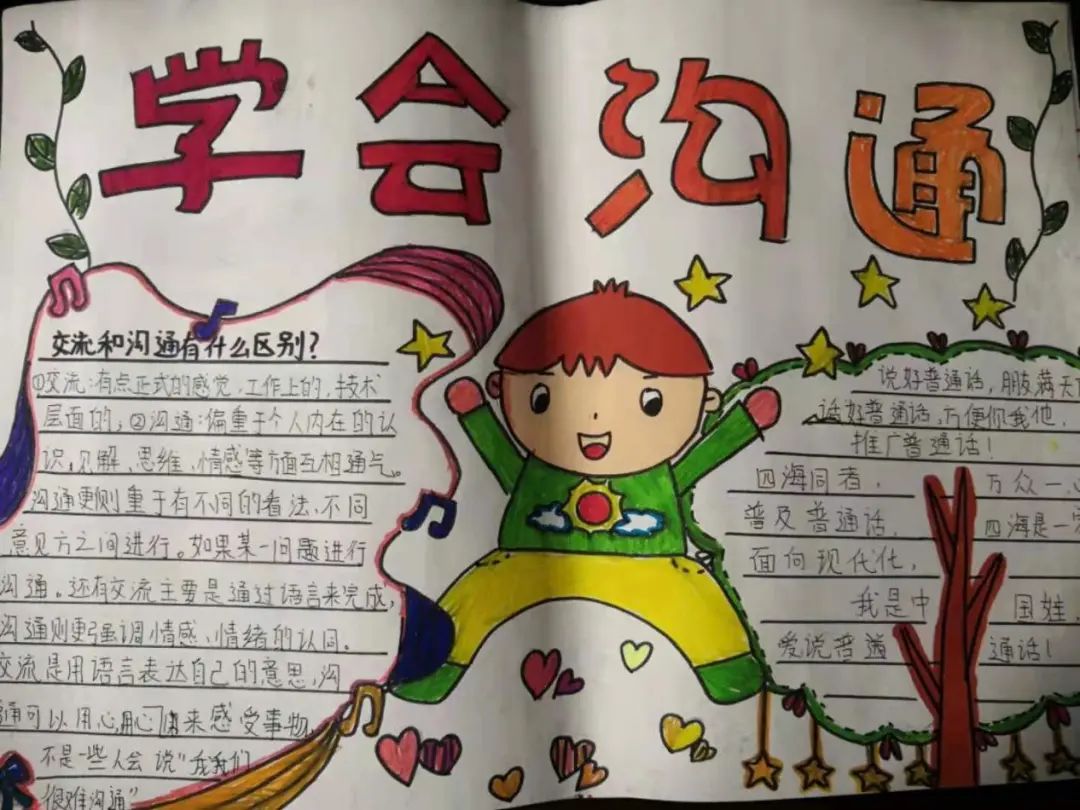 学会沟通
交流和沟通有什么区别?
①交流:有点正式的感觉,工作上的,技术
层面的;②沟通:偏重于个人内在的认
识,见解、思维、情感等方面互相通气。
沟通更则重于有不同的看法、不同
意见方之间进行。如果某一问题进行
沟通。还有交流主要是通过语言来完成,
沟通则更强调情感、情绪的认同。
交流是用语言表达自己的意思,沟
通可以用心,用心来感受事物,
不是一些人会说“我我们
很难沟通”
说好普通话,朋友满天
话好普通话,方便你我他.
推广普通话!
四海同音,万众一心
普及普通话.四海是一家
面向现代化,
我是中国娃,
爱说普通通话!